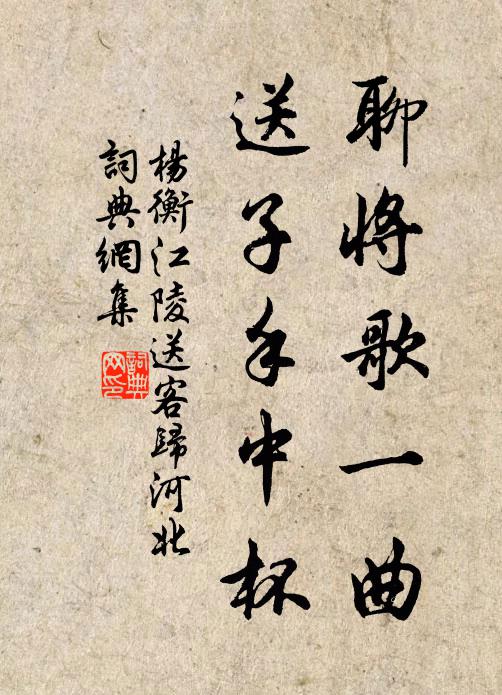 聊將歌一曲
送子手中杯
楊衡江陵送客歸河北
詞典網集
詞典网印